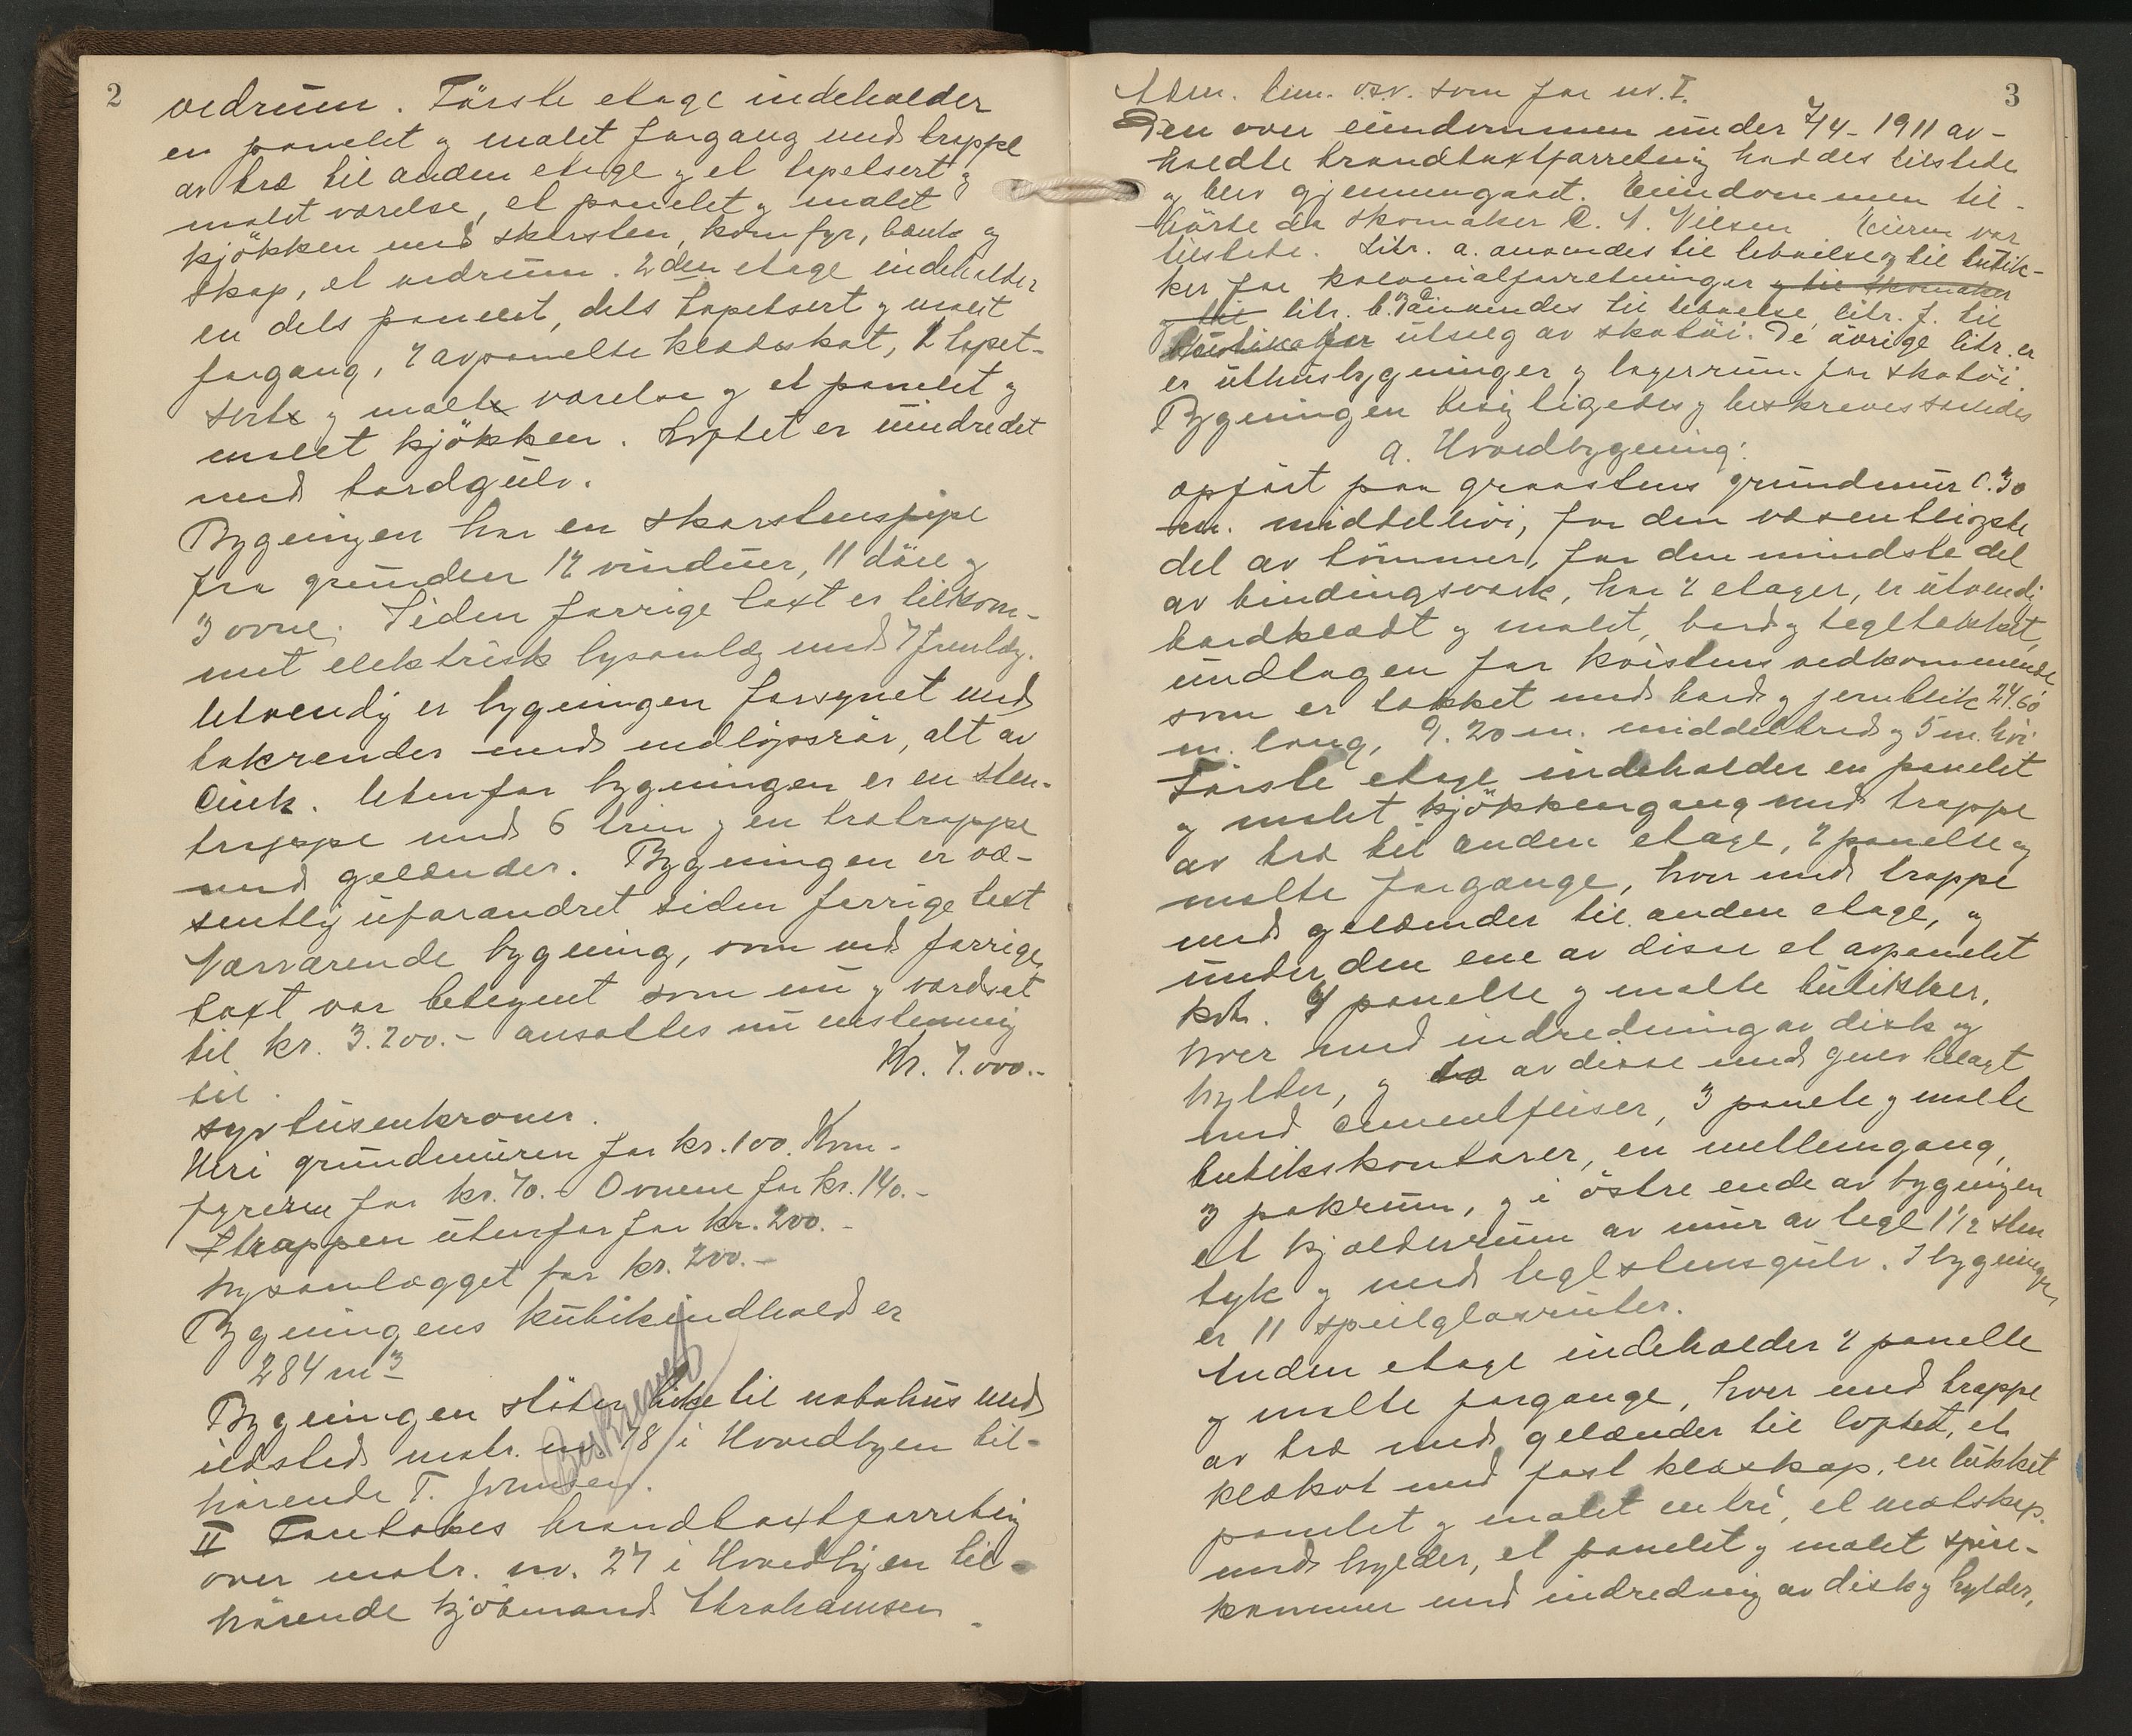 2
vedrum. Förste etage indeholder
en panelet og malet forgang med trappe
av træ til anden etage og et tapetsert og
malet værelse, et panelet og malet
kjökken med skorsten, komfyr, bænk og
skap, et vedrum. 2den etage indeholder
en dels panelet, dels tapetsert og malt
forgang, 2 avpanelte klædeskot, 2 tapet-
serte og malte værelse og et panelet og
malet kjökken. Loftet er uindredet
med bordgulv.
Bygningen har en skorstenspipe
fra grunden 12 vinduer, 11 döre og
3 ovne. Siden forrige taxt er tilkom-
met elektrisk lysanlæg med 7 fremlæg.
Utvendig er bygningen forsynet med
takrender med nedlöpsrör, alt av
Cink. Utenfor bygningen er en sten-
trappe med 6 trin og en trætrappe
med gelænder. Bygningen er væ-
sentlig uforandret siden forrige taxt
Nærværende bygning, som ved forrige
taxt var betegnet som nu og værdsat
til kr. 3.200.- ansattes nu enstemmig
til Kr. 7.000.-
syvtusenkroner.
Heri grundmuren for kr. 100. Kom-
fyren for kr. 70.- Ovnene for kr. 140.-
Strappen utenfor for kr. 200.-
lysanlægget for kr. 200.-
Bygningens kubikindhold er
284 m3
Bygningen stöter like til nabohus med
ildsted matr. no 78 i Hovedbyen til-
hörende T. Johnsen.
Beskrevet
II Foretokes brandtaxtforretning
over matr. nr. 27 i Hovedbyen til-
hörende kjöbmand Abrahamsen
3
Adm. Com. o.s.v. som for nr. I.
Den over eiendommen under 7/4-1911 av-
holdte brandtaxtforretning haddes tilstede
og blev gjennemgaat. Eiendommen til-
hörte da skomaker C. A. Nilsen Eieren var
tilstede. Litr. a. anvendes til beboelse og til butik-
ker for kolonialforretninger og til skomaker
og til litr. b. anvendes til beboelse, litr. f. til
utsalg av skotöi. De övrige litr. er
er uthusbygninger og lagerrum for skotöi.
Bygningen besigtigedes og beskreves saaledes
a. Hovedbygning:
opfört paa graastens grundmur 0.30
m. middelhöi, for den væsentligste
del av tömmer, for den mindste del
av bindingsverk, har 2 etager, er utvendig
bordklædt og malet, bord og tegltækket,
undtagen for kvistens vedkommende
som er tækket med bord og jernblik 24.60
m. lang, 9.20 m. middelbred og 5 m. höi
Förste etage indeholder en panelet
og malet kjökkengang med trappe
av træ til anden etage, 2 panelte og
malte forgange, hver med trappe
med gelænder til anden etage, og
under den ene av disse et avpanelet
kott. 4 panelte og malte butikker,
hver med indredning av disk og
hylder, og to av disse med gulv belagt
med cementfliser, 3 panelte og malte
butikskontorer, en mellemgang,
3 pakrum, og i östre ende av bygningen
et kjælderrum av mur av tegl 1 1/2 sten
tyk og med teglstensgulv. I bygningen
er 11 speilglasruter.
Anden etage indeholder 2 panelte
og malte forgange, hver med trappe
av træ med gelænder til loftet, et
klækot med fast klæskap, en lukket
panelet og malet entré, et matskap
med hylder, et panelet og malet spise-
kammer med indredning av disk og hylder,